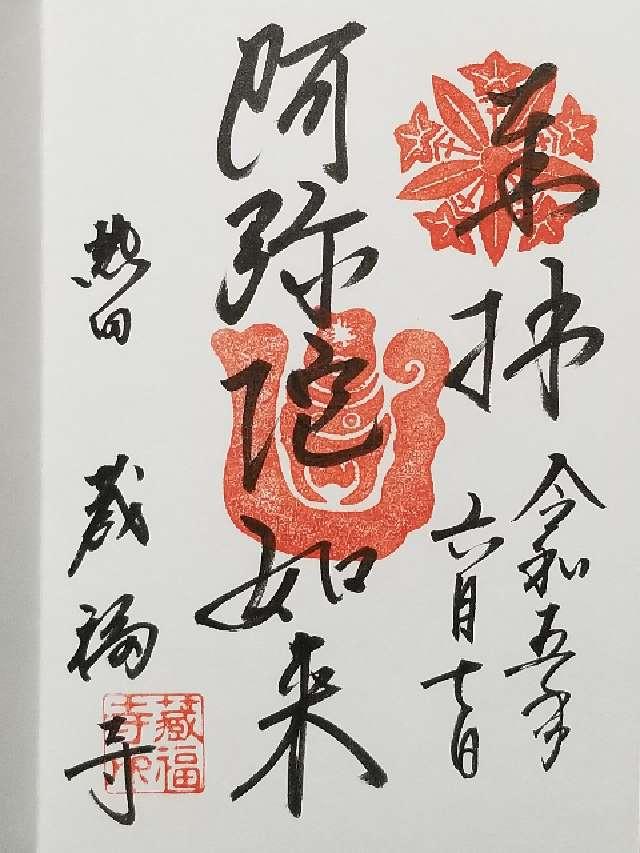 奉拝
令和五年
六月七日
阿弥陀如来
熱田 蔵福寺
藏福
寺印